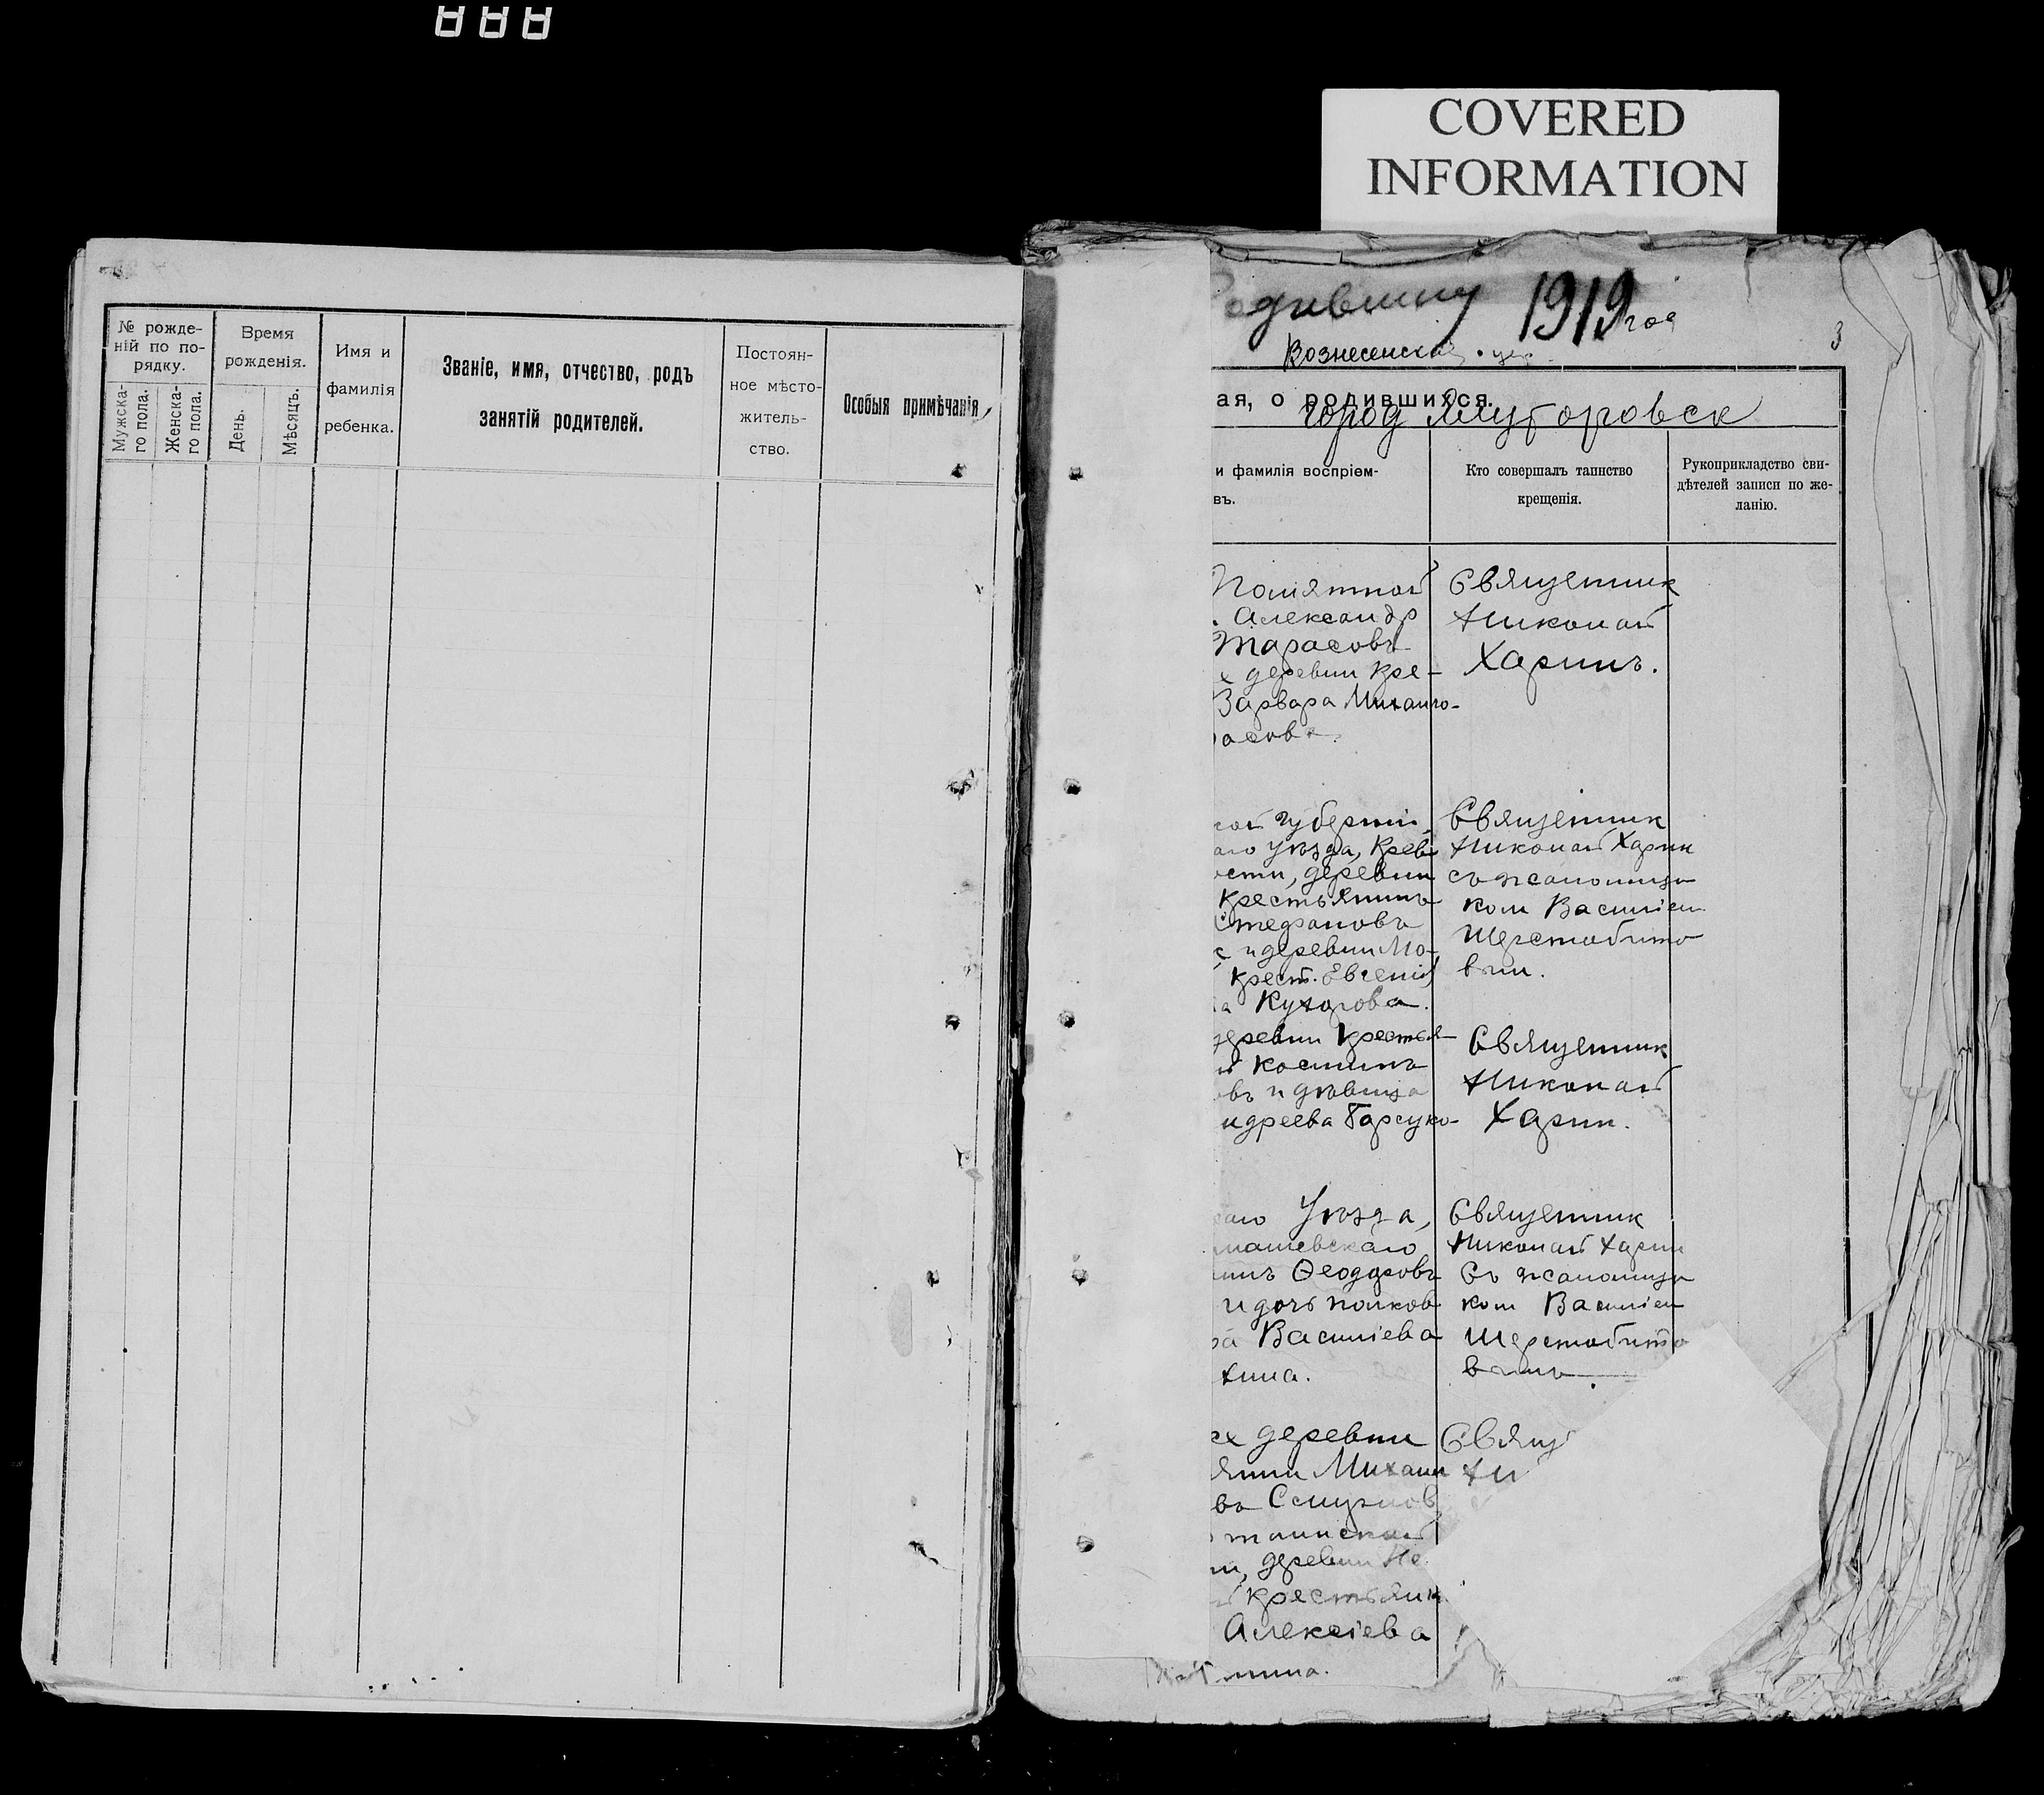 COVERED
INFORMATION
№ рожде-
ній по по-
рядку.
Мужска-
го пола.
Женска-
го пола.
Время
рожденія.
День.
Мѣсяцъ.
Имя и
фамилія
ребенка.
Званіе, имя, отчество, родъ
занятій родителей.
Постоян-
ное мѣсто-
житель-
ство.
Особыя примѣчанія,
1919 год
3
Вознесенск
ая, о родившихся.
город
и фамилія воспріем-
въ.
Кто совершалъ таинство
крещенія.
Рукоприкладство сви-
дѣтелей записи по же-
ланію.
Александр
Тарасовъ
деревни кре-
Варвара Михаило-
расова.
Священник
Николай
Харинъ.
губерніи
аго уѣзда,
ости, деревни
крестьянинъ
Стефановъ
и деревни Мо-
крест. Евгенія
Кухарова.
Священник
Николай Харин
съ псаломщи
ком Василіем
Шерстобито
вым.
деревни крестья-
Космина
въ и дѣвица
ндреева Барсуко-
Священник
Николай
Харин.
аго Уѣзда,
машевскаго
Ѳеодоровъ
и дочь полков
Василіева
хина.
Священник
Николай Харин
Съ псаломщи
ком Василіем
Шерстобито
вымъ
деревни
янин Михаил
въ Смирнов
деревни Не
крестьянк
Алексіева
Свящ
Ни